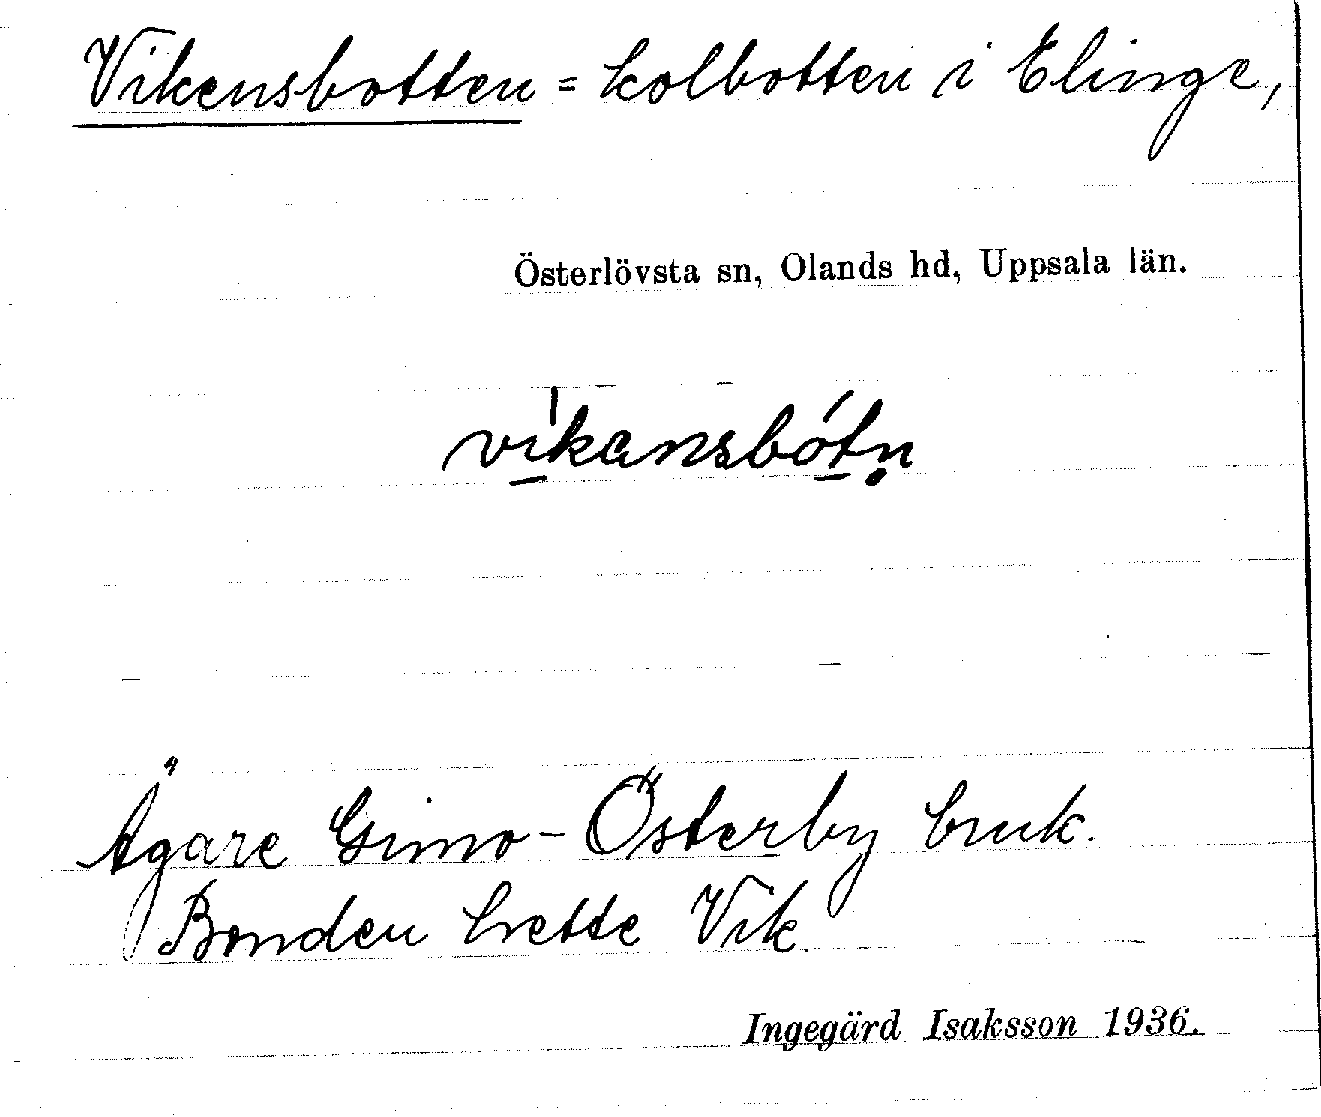 Vikensbotten = kolbotten i Elinge,
Österlövsta sn, Olands hd, Uppsala län.
ví̱kansbó̱tṇ
Ägare Gimo-Österby bruk.
Bonden hette Vik.
Ingegärd Isaksson 1936.